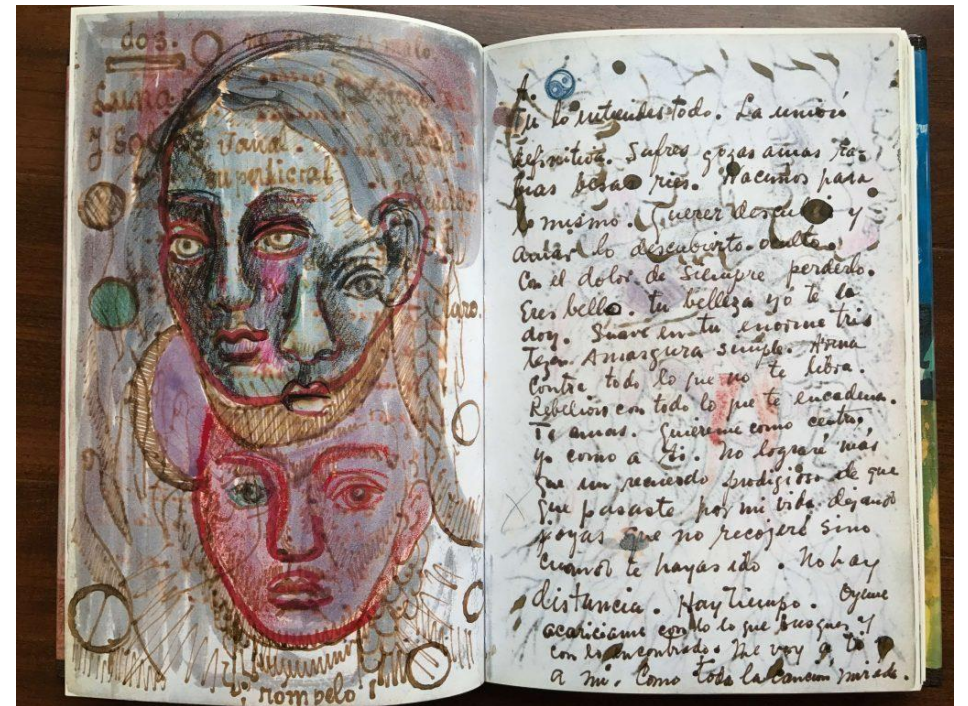 dos.
Luna
y soles vanal.
superficial
laro.
¡rompelo!
Tu lo entiendes todo. La unión
definitiva. Sufres gozas amas ra-
bias besas ries. Nacimos para
lo mismo. Querer descubrir y
amar lo descubierto. oculto.
Con el dolor de siempre perderlo.
Eres bello. tu belleza yo te la
doy. Suave en tu enorme tris
teza. Amargura simple. Arma
contra todo lo que no te libra.
Rebelion con todo lo que te encadena.
Te amas. quiereme como centro.
yo como a ti. No lograré más
que un recuerdo prodigioso de que
que pasaste por mi vida dejando
joyas que no recojeré sino
cuando te hayas ido. No hay
distancia. Hay tiempo. Oyeme
acariciame con lo que busques y
con lo encontrado. Me voy a ti
a mi. Como toda la cancion mirada.